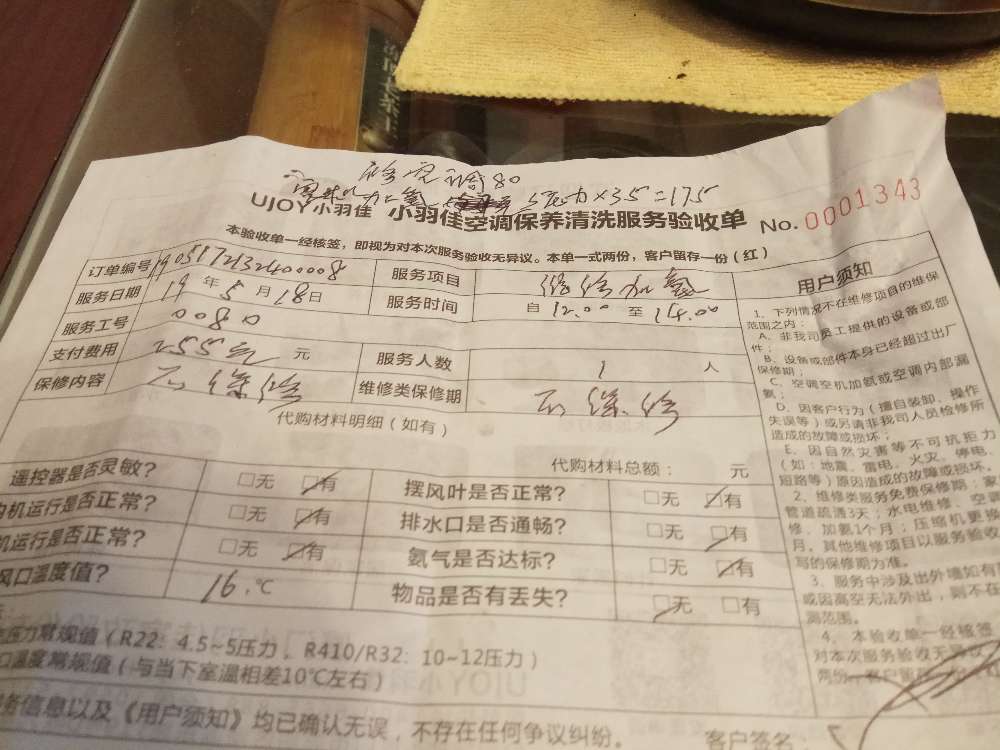 修 80
加氨 5压力×35=175
UJOY小羽佳 小羽佳空调保养清洗服务验收单 No. 0001343
本验收单一经核签，即视为对本次服务验收无异议。本单一式两份，客户留存一份（红）
订单编号 190517213240008 服务项目 维修加氨
服务日期 19年5月18日 服务时间 自12.00至14.00
服务工号 0080
支付费用 255元 元 服务人数 1 人
保修内容 不保修 维修类保修期 不保修
代购材料明细（如有）
代购材料总额： 元
遥控器是否灵敏？ □无 ☑有 摆风叶是否正常？ □无 ☑有
机运行是否正常？ □无 ☑有 排水口是否通畅？ □无 ☑有
机运行是否正常？ □无 ☑有 氨气是否达标？ □无 ☑有
风口温度值？ 16.℃ 物品是否有丢失？ ☑无 □有
压力常规值（R22：4.5~5压力，R410/R32：10~12压力）
口温度常规值（与当下室温相差10℃左右）
务信息以及《用户须知》均已确认无误，不存在任何争议纠纷。
客户签名：
用户须知
1、下列情况不在维修项目的维保
范围之内：
A、非我司员工提供的设备或部
件；
B、设备或部件本身已经超过出厂
保修期；
C、空调空机加氨或空调内部漏
氨；
D、因客户行为（擅自装卸、操作
失误等）或另请非我司人员检修所
造成的故障或损坏；
E、因自然灾害等不可抗拒力
（如：地震、雷电、火灾、停电、
短路等）原因造成的故障或损坏。
2、维修类服务免费保修期：家
管道疏通3天；水电维修、空调
修、加氨1个月；压缩机更换
月，其他维修项目以服务验收
写的保修期为准。
3、服务中涉及出外墙如有
或因高空无法外出，则不在
测范围。
4、本验收单一经核签
对本次服务验收无异议
两份，客户留